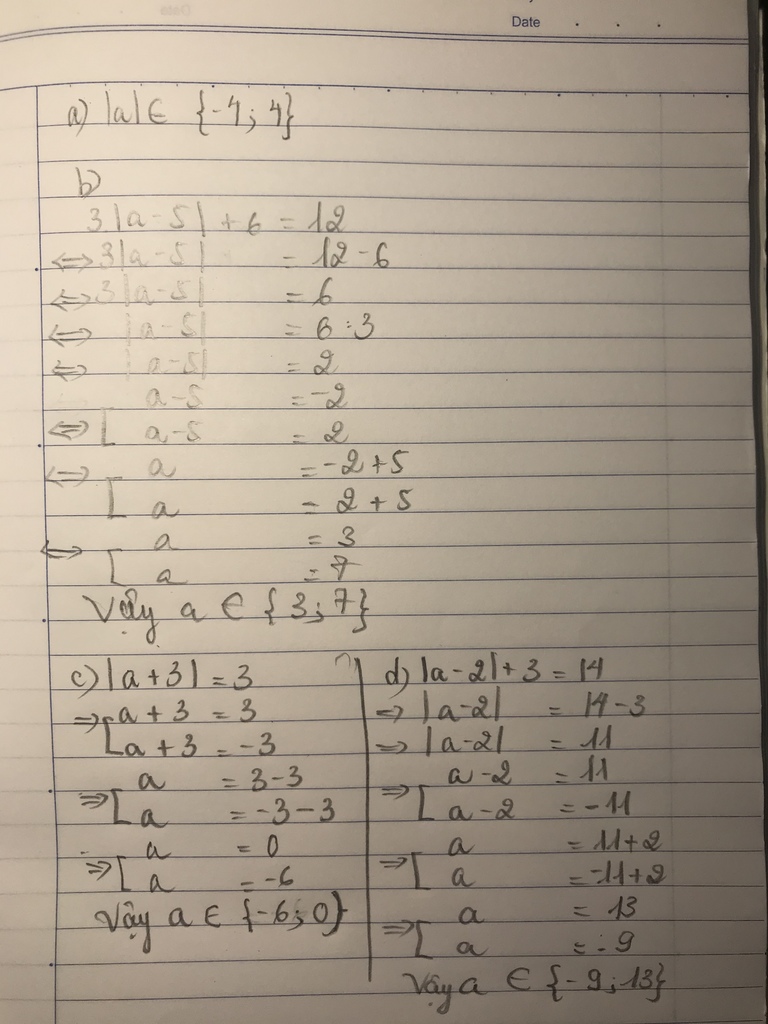 Date
a) |a| ∈ {-4; 4}
b)
3|a-5| + 6 = 12
⇔ 3|a-5| = 12-6
⇔ 3|a-5| = 6
⇔ |a-5| = 6:3
⇔ |a-5| = 2
a-5 = -2
⇔ [ a-5 = 2
⇔ a = -2+5
[ a = 2+5
⇔ a = 3
[ a = 7
Vậy a ∈ {3; 7}
c) |a+3| = 3
⇒ [ a+3 = 3
a+3 = -3
⇒ [ a = 3-3
a = -3-3
⇒ [ a = 0
a = -6
Vậy a ∈ {-6; 0}
d) |a-2| + 3 = 14
⇒ |a-2| = 14-3
⇒ |a-2| = 11
⇒ [ a-2 = 11
a-2 = -11
⇒ [ a = 11+2
a = -11+2
⇒ [ a = 13
a = -9
Vậy a ∈ {-9; 13}